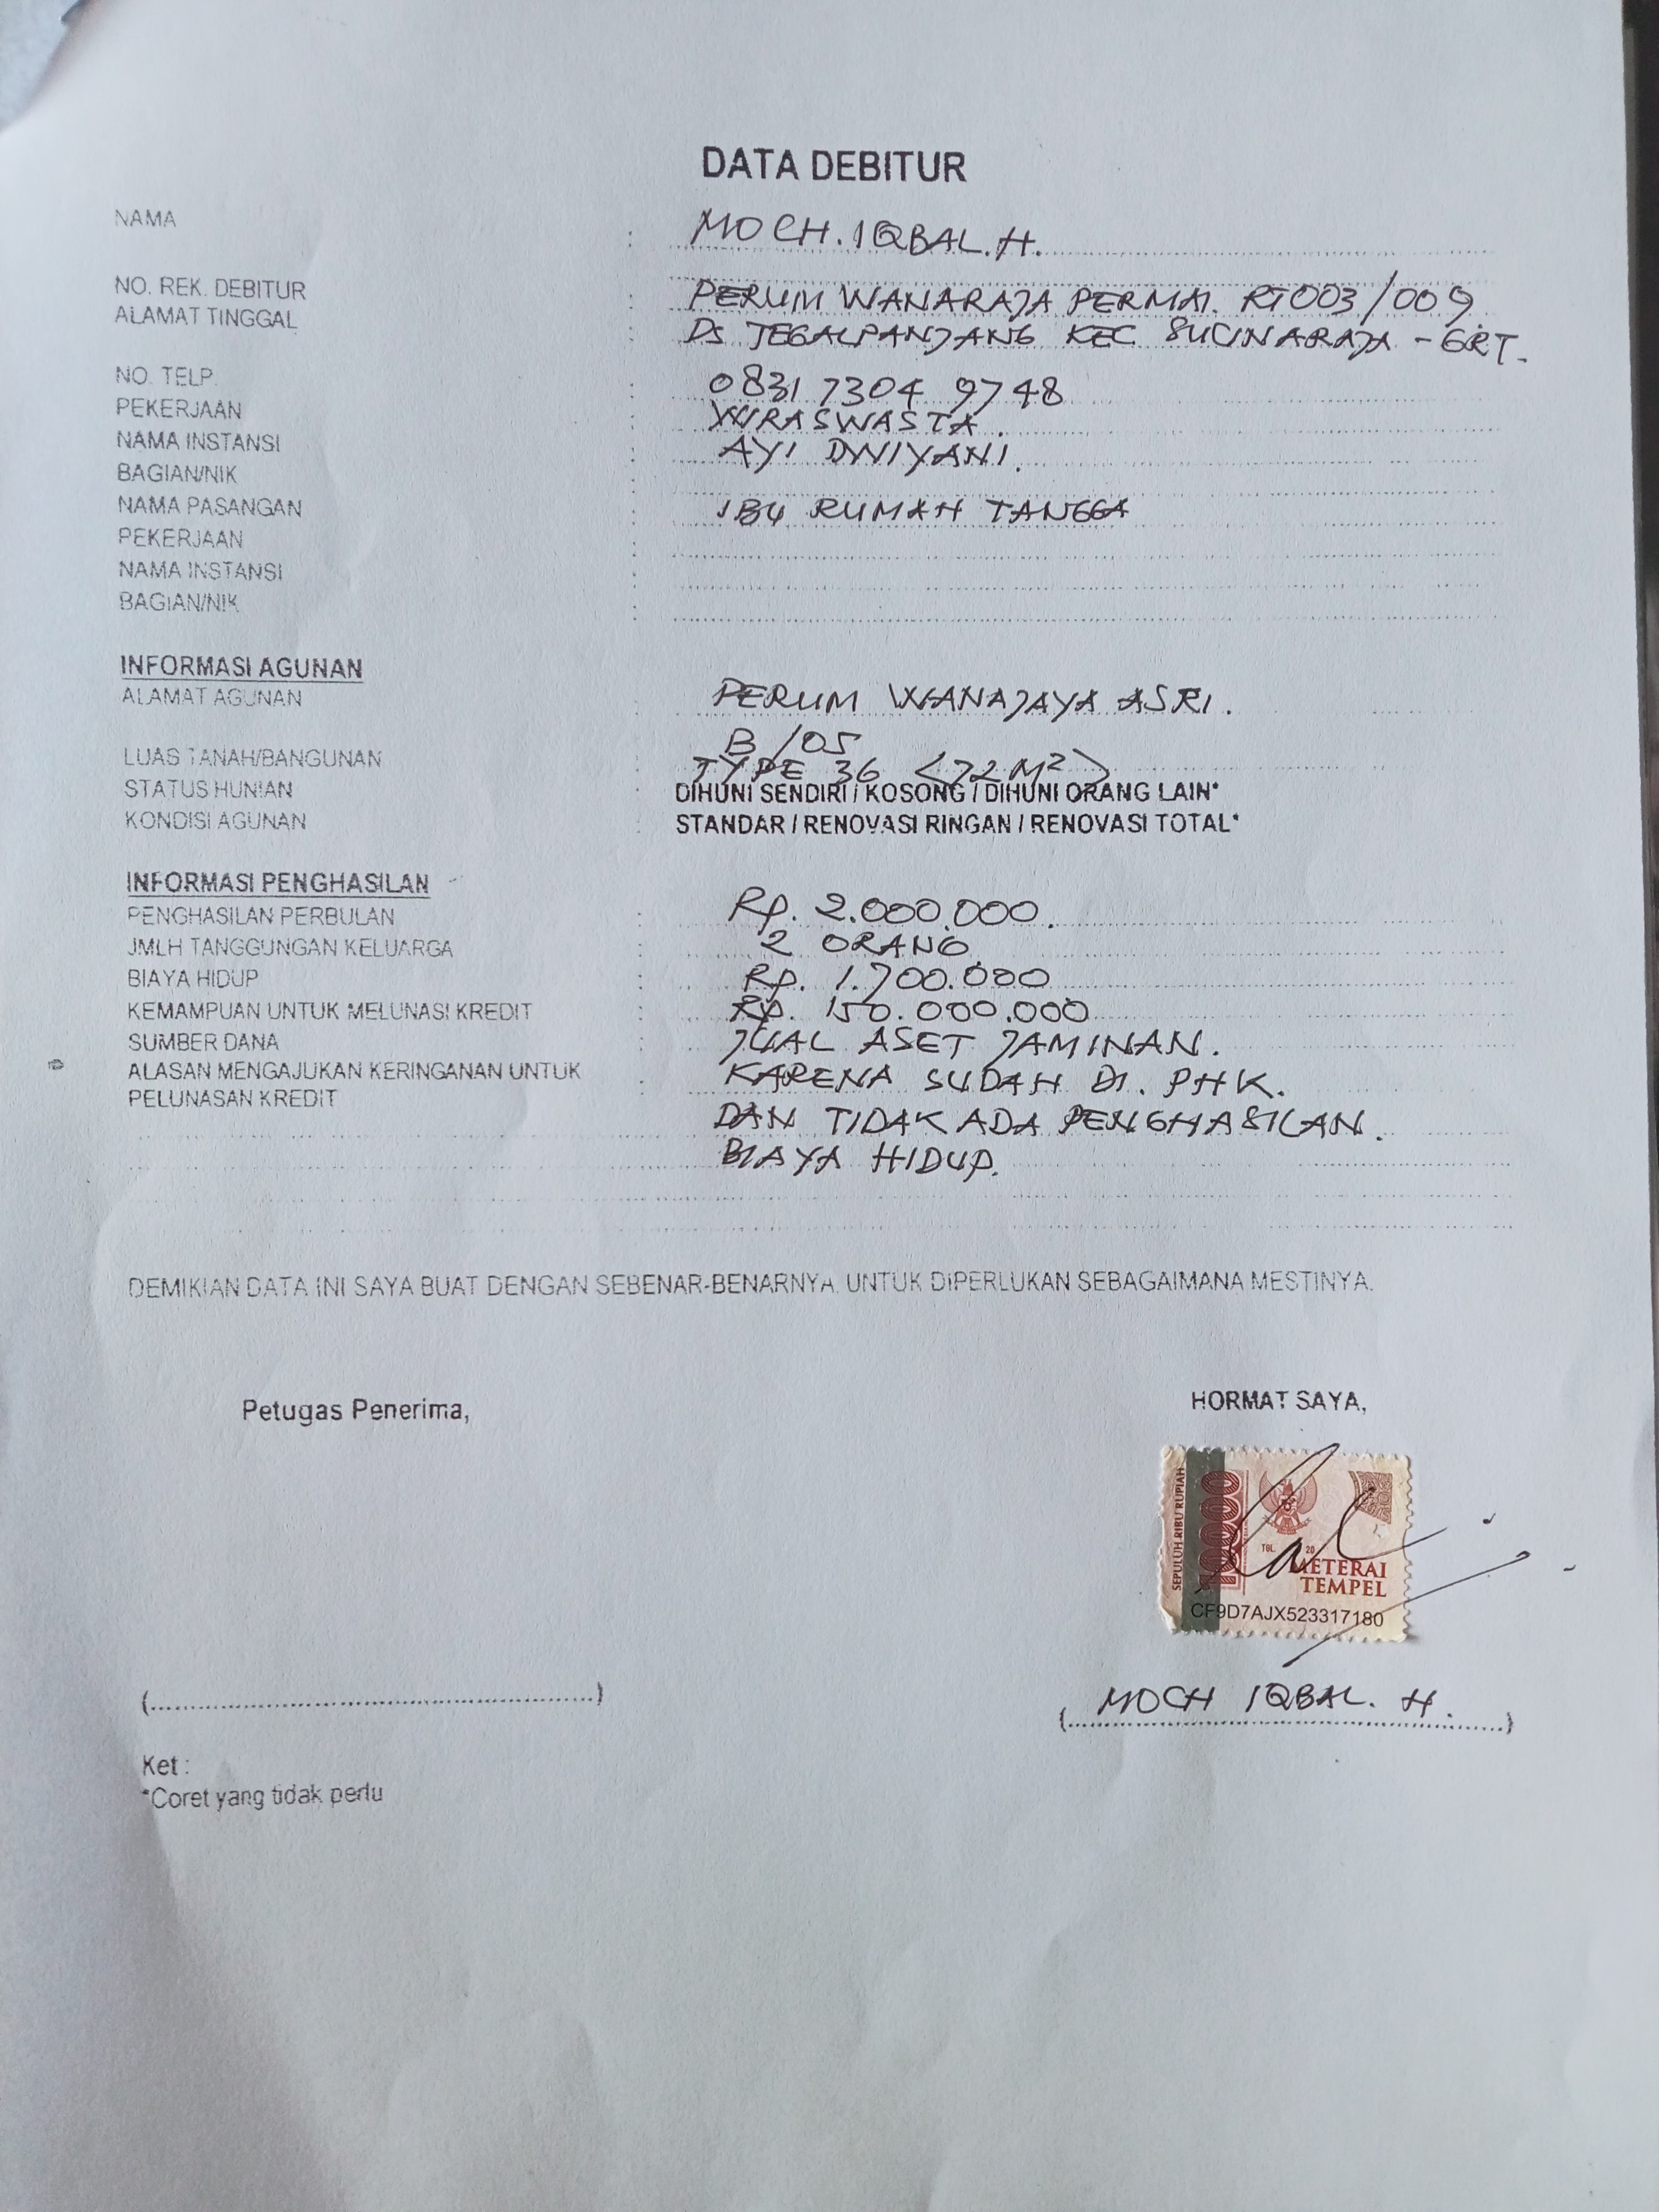 DATA DEBITUR
NAMA : MOCH. IQBAL. H.
NO. REK. DEBITUR :
ALAMAT TINGGAL : PERUM WANARAJA PERMAI. RT 003/009
DS TEGALPANJANG KEC SUCINARAJA - GRT.
NO. TELP. : 0831 7304 9748
PEKERJAAN : WIRASWASTA.
NAMA INSTANSI : AYI DWIYANI.
BAGIAN/NIK :
NAMA PASANGAN : IBU RUMAH TANGGA
PEKERJAAN :
NAMA INSTANSI :
BAGIAN/NIK :
INFORMASI AGUNAN
ALAMAT AGUNAN : PERUM WANAJAYA ASRI.
B/05
LUAS TANAH/BANGUNAN : TYPE 36 <72 M²>
STATUS HUNIAN : DIHUNI SENDIRI / KOSONG / DIHUNI ORANG LAIN*
KONDISI AGUNAN : STANDAR / RENOVASI RINGAN / RENOVASI TOTAL*
INFORMASI PENGHASILAN
PENGHASILAN PERBULAN : Rp. 2.000.000.
JMLH TANGGUNGAN KELUARGA : 2 ORANG
BIAYA HIDUP : Rp. 1.700.000
KEMAMPUAN UNTUK MELUNASI KREDIT : Rp. 150.000.000
SUMBER DANA : JUAL ASET JAMINAN.
ALASAN MENGAJUKAN KERINGANAN UNTUK
PELUNASAN KREDIT : KARENA SUDAH DI. PHK.
DAN TIDAK ADA PENGHASILAN.
BIAYA HIDUP.
DEMIKIAN DATA INI SAYA BUAT DENGAN SEBENAR-BENARNYA. UNTUK DIPERLUKAN SEBAGAIMANA MESTINYA.
Petugas Penerima,
HORMAT SAYA,
SEPULUH RIBU RUPIAH
10000
TGL. 20
METERAI
TEMPEL
CF9D7AJX523317180
(....................)
(MOCH IQBAL. H.)
Ket :
*Coret yang tidak perlu